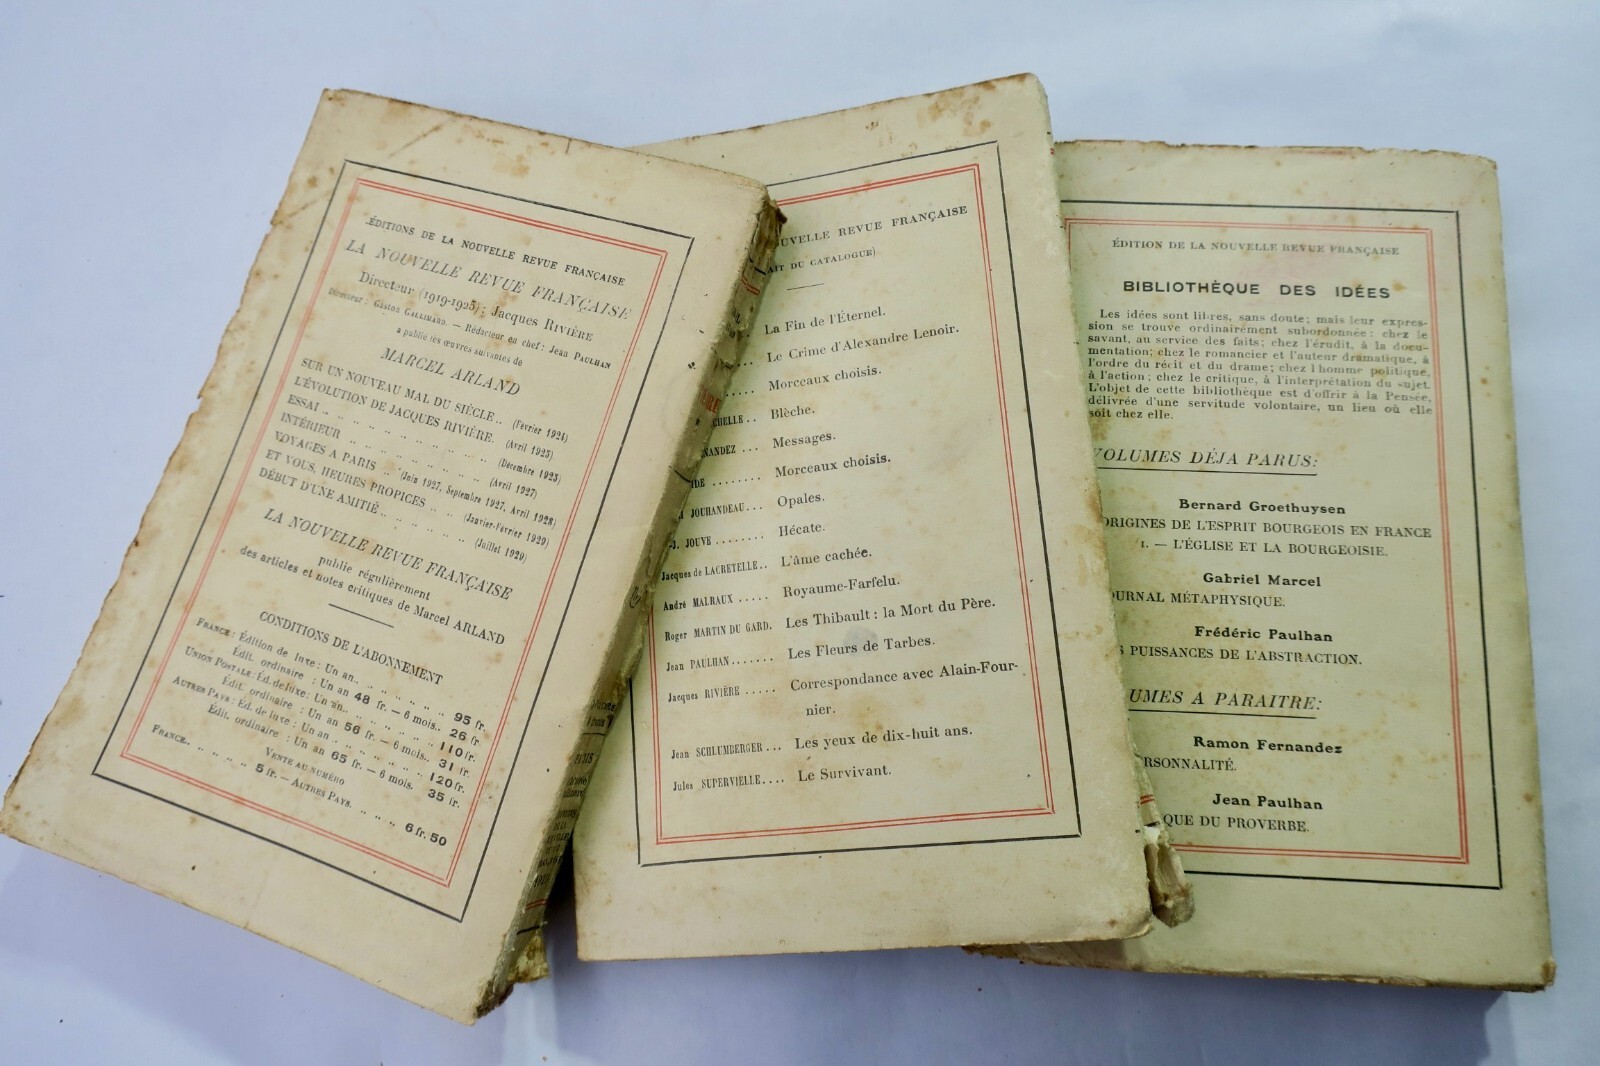 ÉDITIONS DE LA NOUVELLE REVUE FRANÇAISE
LA NOUVELLE REVUE FRANÇAISE
Directeur (1919-1925) : Jacques RIVIÈRE
Directeur : GASTON GALLIMARD. — Rédacteur en chef : JEAN PAULHAN
a publié les œuvres suivantes de
MARCEL ARLAND
SUR UN NOUVEAU MAL DU SIÈCLE .. (Février 1924)
L'ÉVOLUTION DE JACQUES RIVIÈRE. (Avril 1925)
ESSAI .. .. .. .. .. .. .. .. (Décembre 1925)
INTÉRIEUR .. .. .. .. .. .. .. (Avril 1927)
VOYAGES A PARIS .. (Juin 1927, Septembre 1927, Avril 1928)
ET VOUS, HEURES PROPICES .. .. (Janvier-Février 1929)
DÉBUT D'UNE AMITIÉ .. .. .. .. .. (Juillet 1929)
LA NOUVELLE REVUE FRANÇAISE
publie régulièrement
des articles et notes critiques de Marcel ARLAND
CONDITIONS DE L'ABONNEMENT
FRANCE : Édition de luxe : Un an .. .. .. .. .. .. 95 fr.
Édit. ordinaire : Un an 48 fr. — 6 mois .. 26 fr.
UNION POSTALE : Éd. de luxe : Un an .. .. .. .. .. 110 fr.
Édit. ordinaire : Un an 56 fr. — 6 mois .. 31 fr.
AUTRES PAYS : Éd. de luxe : Un an .. .. .. .. .. 120 fr.
Édit. ordinaire : Un an 65 fr. — 6 mois. 35 fr.
VENTE AU NUMÉRO
FRANCE .. .. .. .. .. 5 fr. — AUTRES PAYS. .. .. .. 6 fr. 50
PARIS
OUVELLE REVUE FRANÇAISE
AIT DU CATALOGUE)
La Fin de l'Éternel.
Le Crime d'Alexandre Lenoir.
Morceaux choisis.
CHELLE .. Blèche.
NANDEZ ... Messages.
IDE ........ Morceaux choisis.
JOUHANDEAU ... Opales.
-J. JOUVE ........ Hécate.
Jacques de LACRETELLE .. L'âme cachée.
André MALRAUX ..... Royaume-Farfelu.
Roger MARTIN DU GARD. Les Thibault : la Mort du Père.
Jean PAULHAN ....... Les Fleurs de Tarbes.
Jacques RIVIÈRE ..... Correspondance avec Alain-Four-
nier.
Jean SCHLUMBERGER ... Les yeux de dix-huit ans.
Jules SUPERVIELLE .... Le Survivant.
ÉDITION DE LA NOUVELLE REVUE FRANÇAISE
BIBLIOTHÈQUE DES IDÉES
Les idées sont libres, sans doute ; mais leur expres-
sion se trouve ordinairement subordonnée : chez le
savant, au service des faits ; chez l'érudit, à la docu-
mentation ; chez le romancier et l'auteur dramatique, à
l'ordre du récit et du drame ; chez l'homme politique,
à l'action ; chez le critique, à l'interprétation du sujet.
L'objet de cette bibliothèque est d'offrir à la Pensée,
délivrée d'une servitude volontaire, un lieu où elle
soit chez elle.
VOLUMES DÉJA PARUS :
Bernard Groethuysen
ORIGINES DE L'ESPRIT BOURGEOIS EN FRANCE
I. — L'ÉGLISE ET LA BOURGEOISIE.
Gabriel Marcel
OURNAL MÉTAPHYSIQUE.
Frédéric Paulhan
S PUISSANCES DE L'ABSTRACTION.
UMES A PARAITRE :
Ramon Fernandez
RSONNALITÉ.
Jean Paulhan
QUE DU PROVERBE.